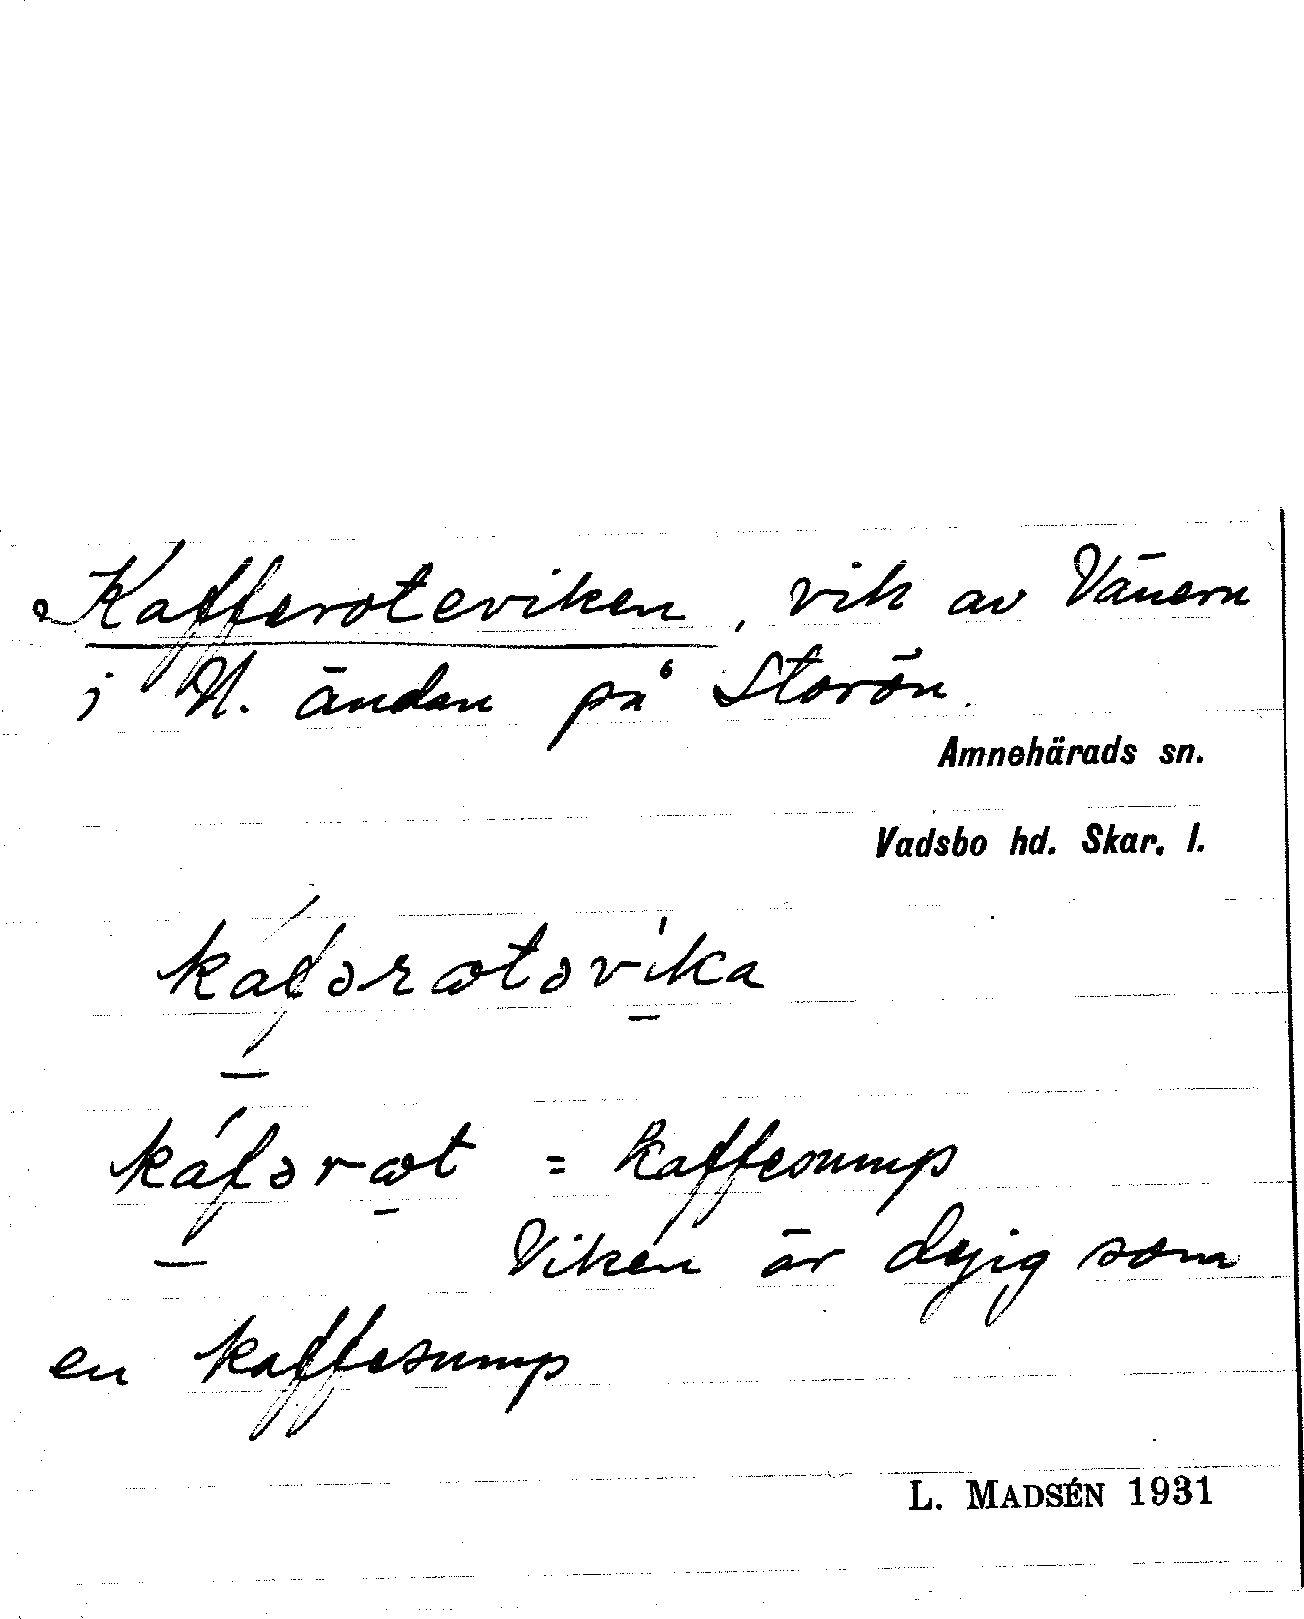 Kafferoteviken, vik av Vänern
i N. ändan på Storön.
Amnehärads sn.
Vadsbo hd. Skar. l.
káfərωtəvìka
káfərωt = kaffesump
Viken är dyig som
en kaffesump
L. MADSÉN 1931